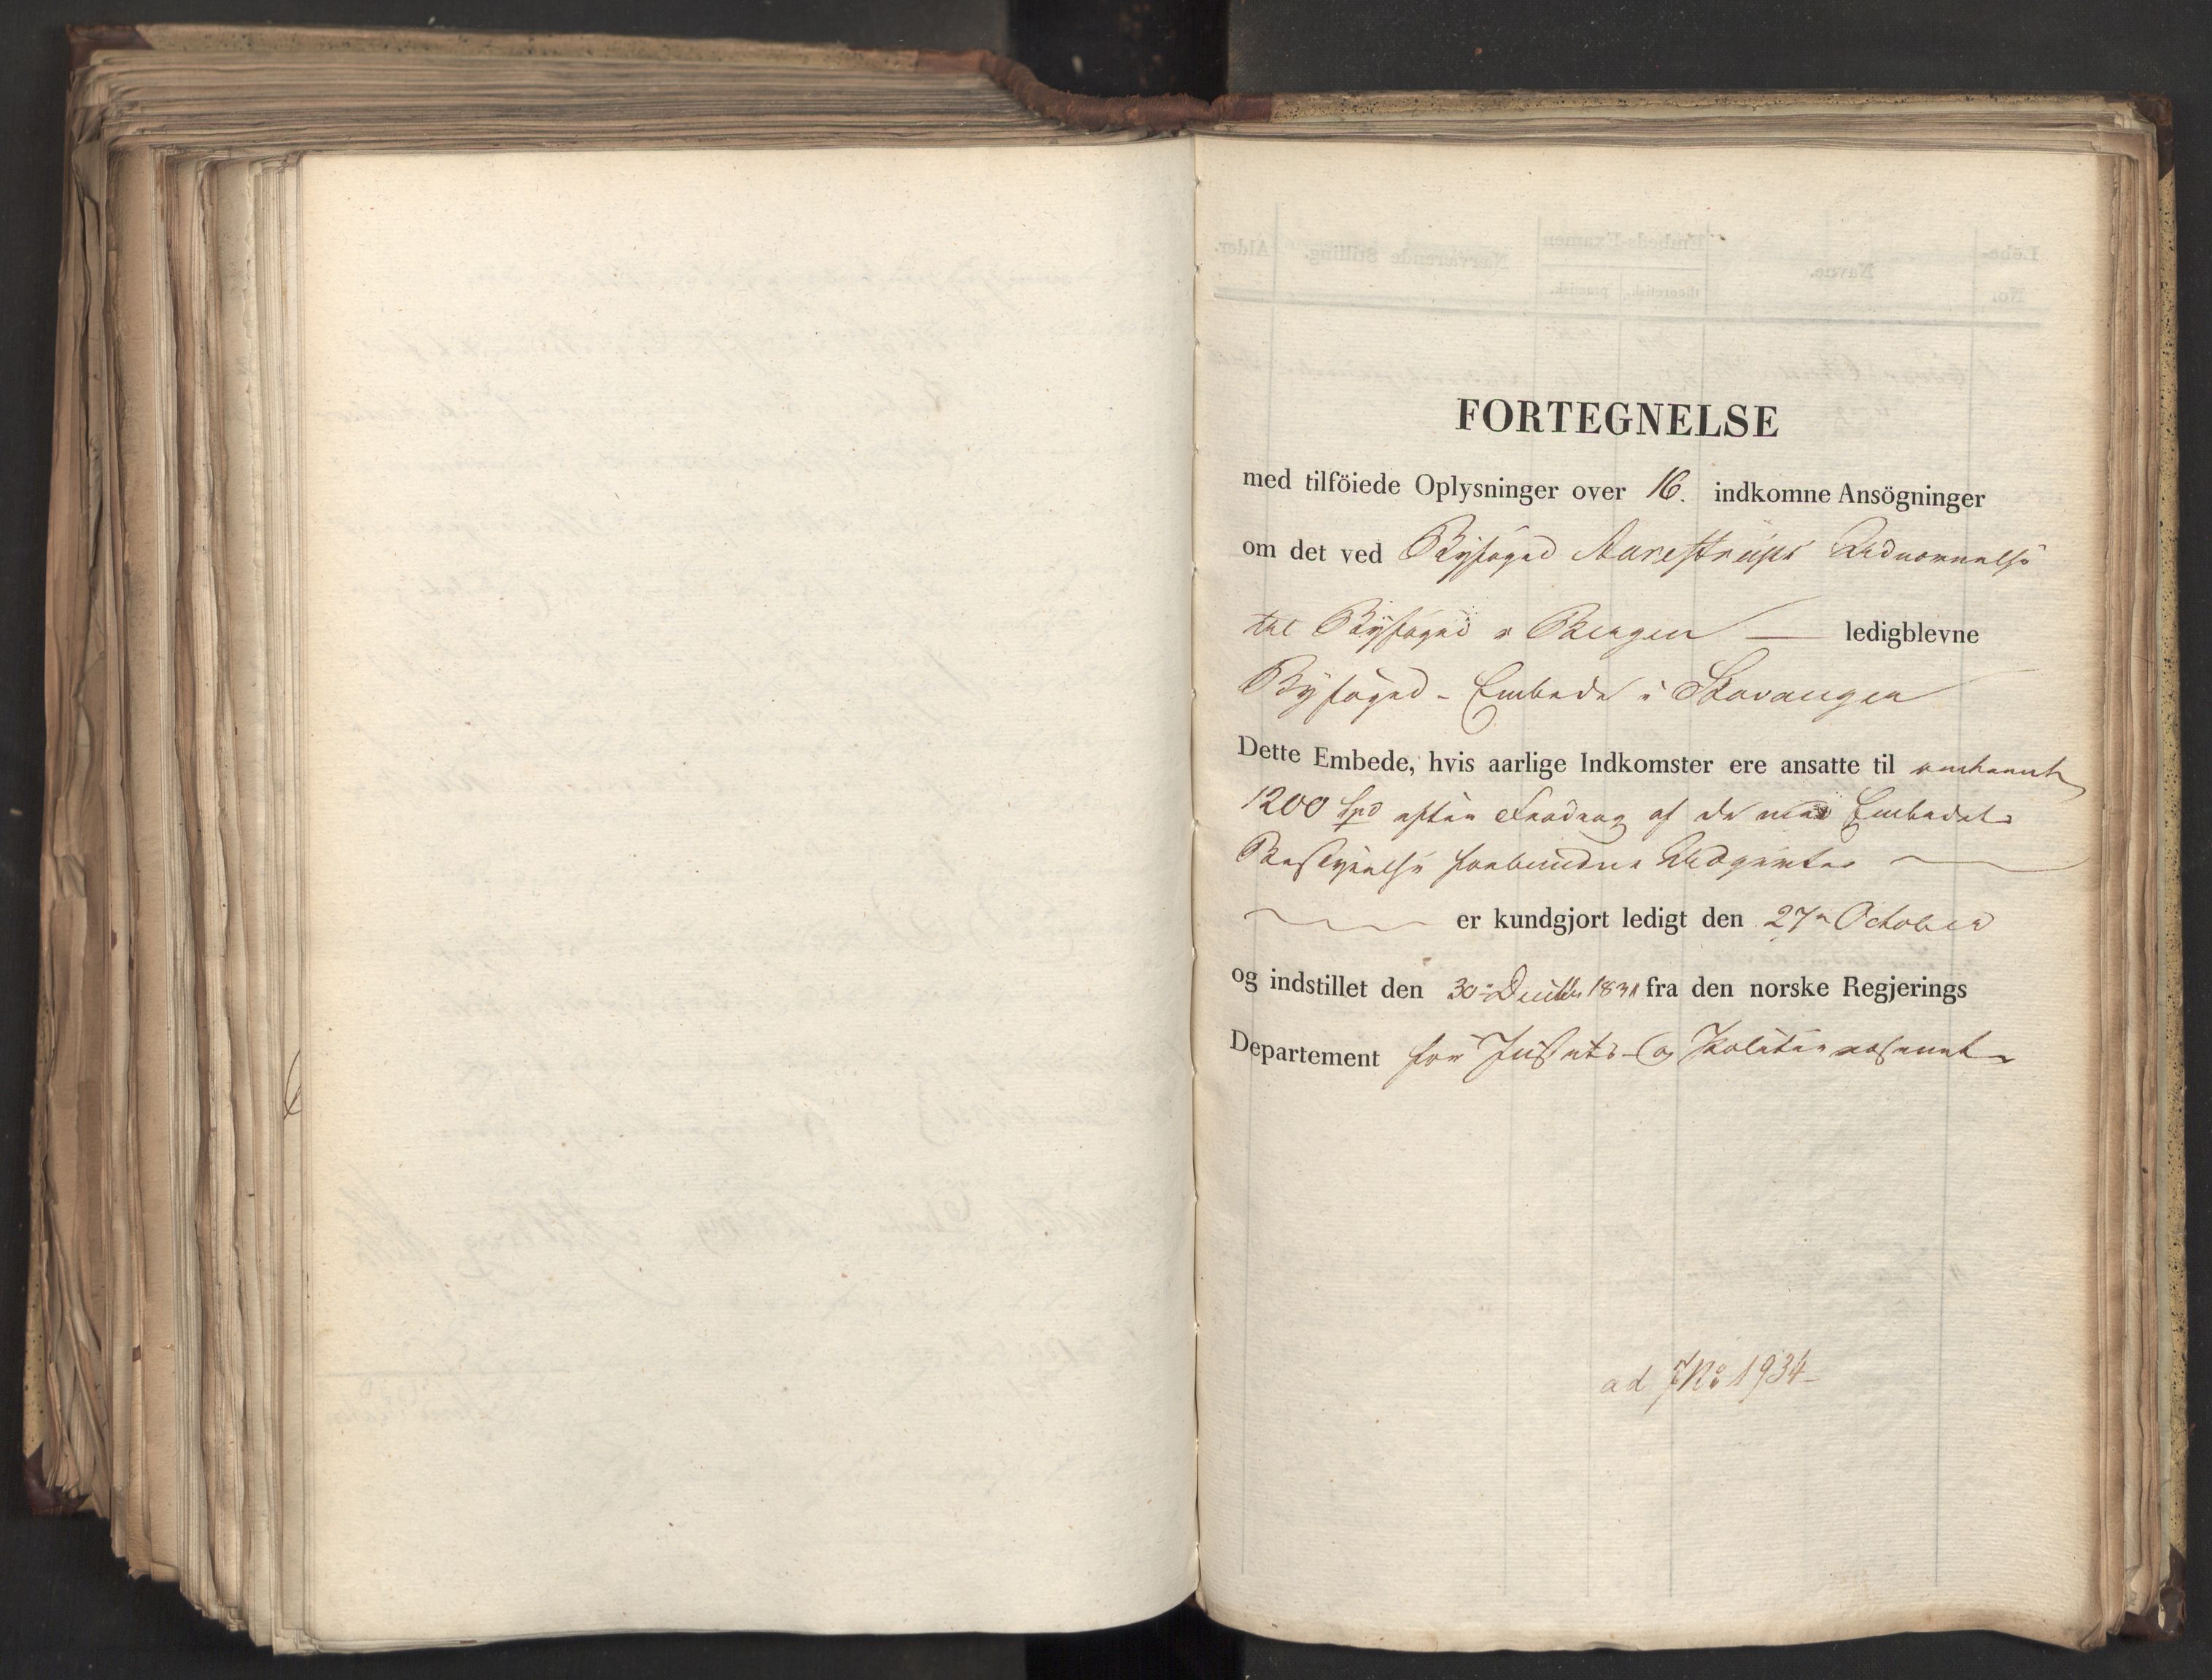 FORTEGNELSE
med tilföiede Oplysninger over 16. indkomne Ansögninger
om det ved Byfoged Aarestrups Udnævnelse
til Byfoged i Bergen — ledigblevne
Byfoged-Embede i Stavanger
Dette Embede, hvis aarlige Indkomster ere ansatte til omtrent
1200 Spd efter Fradrag af de med Embedets
Bestyrelse forbundne Udgifter
er kundgjort ledigt den 27de October
og indstillet den 30te Decbr 1831 fra den norske Regjerings
Departement for Justits- og Politievæsenet
ad JNo 1934